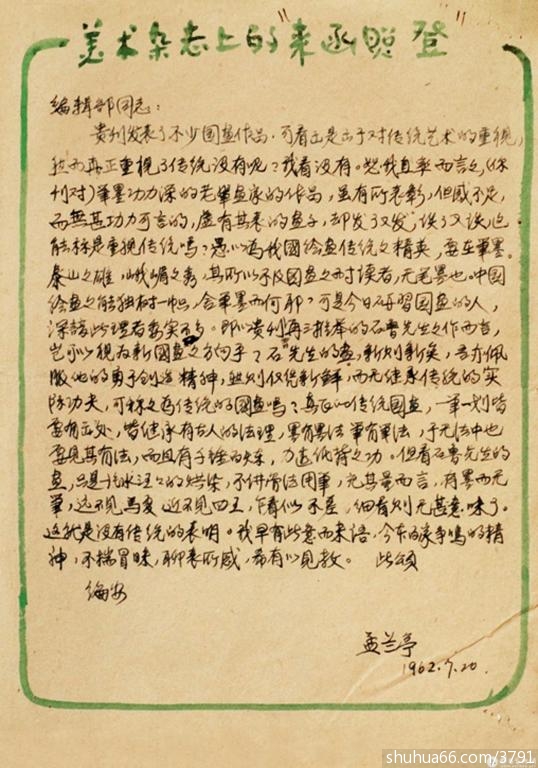 美术杂志上的"来函照登"
编辑部同志：
贵刊发表了不少国画作品，可看出是出于对传统艺术的重视，
然而真正重视了传统没有呢？我看没有。恕我直率而言之，(你
刊对)笔墨功力深的老辈画家的作品，虽有所表彰，但感不足，
而无甚功力可言的，虚有其表的画子，却发了又发，谈了又谈，这
能称是重视传统吗？愚以为我國绘画传统之精英，要在筆墨。
泰山之雄，峨嵋之秀，其所以不及國画之耐读者，无笔墨也。中國
绘画之能独树一帜，舍筆墨而何耶？可是今日研習國画的人，
深諳此理者委实不多。即以貴刊再三推举的石魯先生之作而言，
岂可以視为新國画之方向乎？石先生的画，新则新矣，吾亦佩
服他的勇于创造精神，然则仅得新鲜，而无继承传统的实
际功夫，可称之为传统的國画吗？真正的传统國画，一筆一划皆
要有出处，皆继承有古人的法理，墨有墨法，筆有筆法，于无法中也
要见其有法，而且有千锤百炼，力透纸背之功。但看石魯先生的
画，只是一代水汪々的烘染，不讲骨法用筆，尤其屋而言，有墨而无
筆，远不见马夏，近不见四王，乍看似不差，细看则无甚意味了。
这就是没有传统的表明。我早有此意而未语，今本百家争鸣的精
神，不揣冒昧，聊表所感，希有以见教。 此颂
编安
孟兰亭
1962.7.20.
shuhua66.com/3791